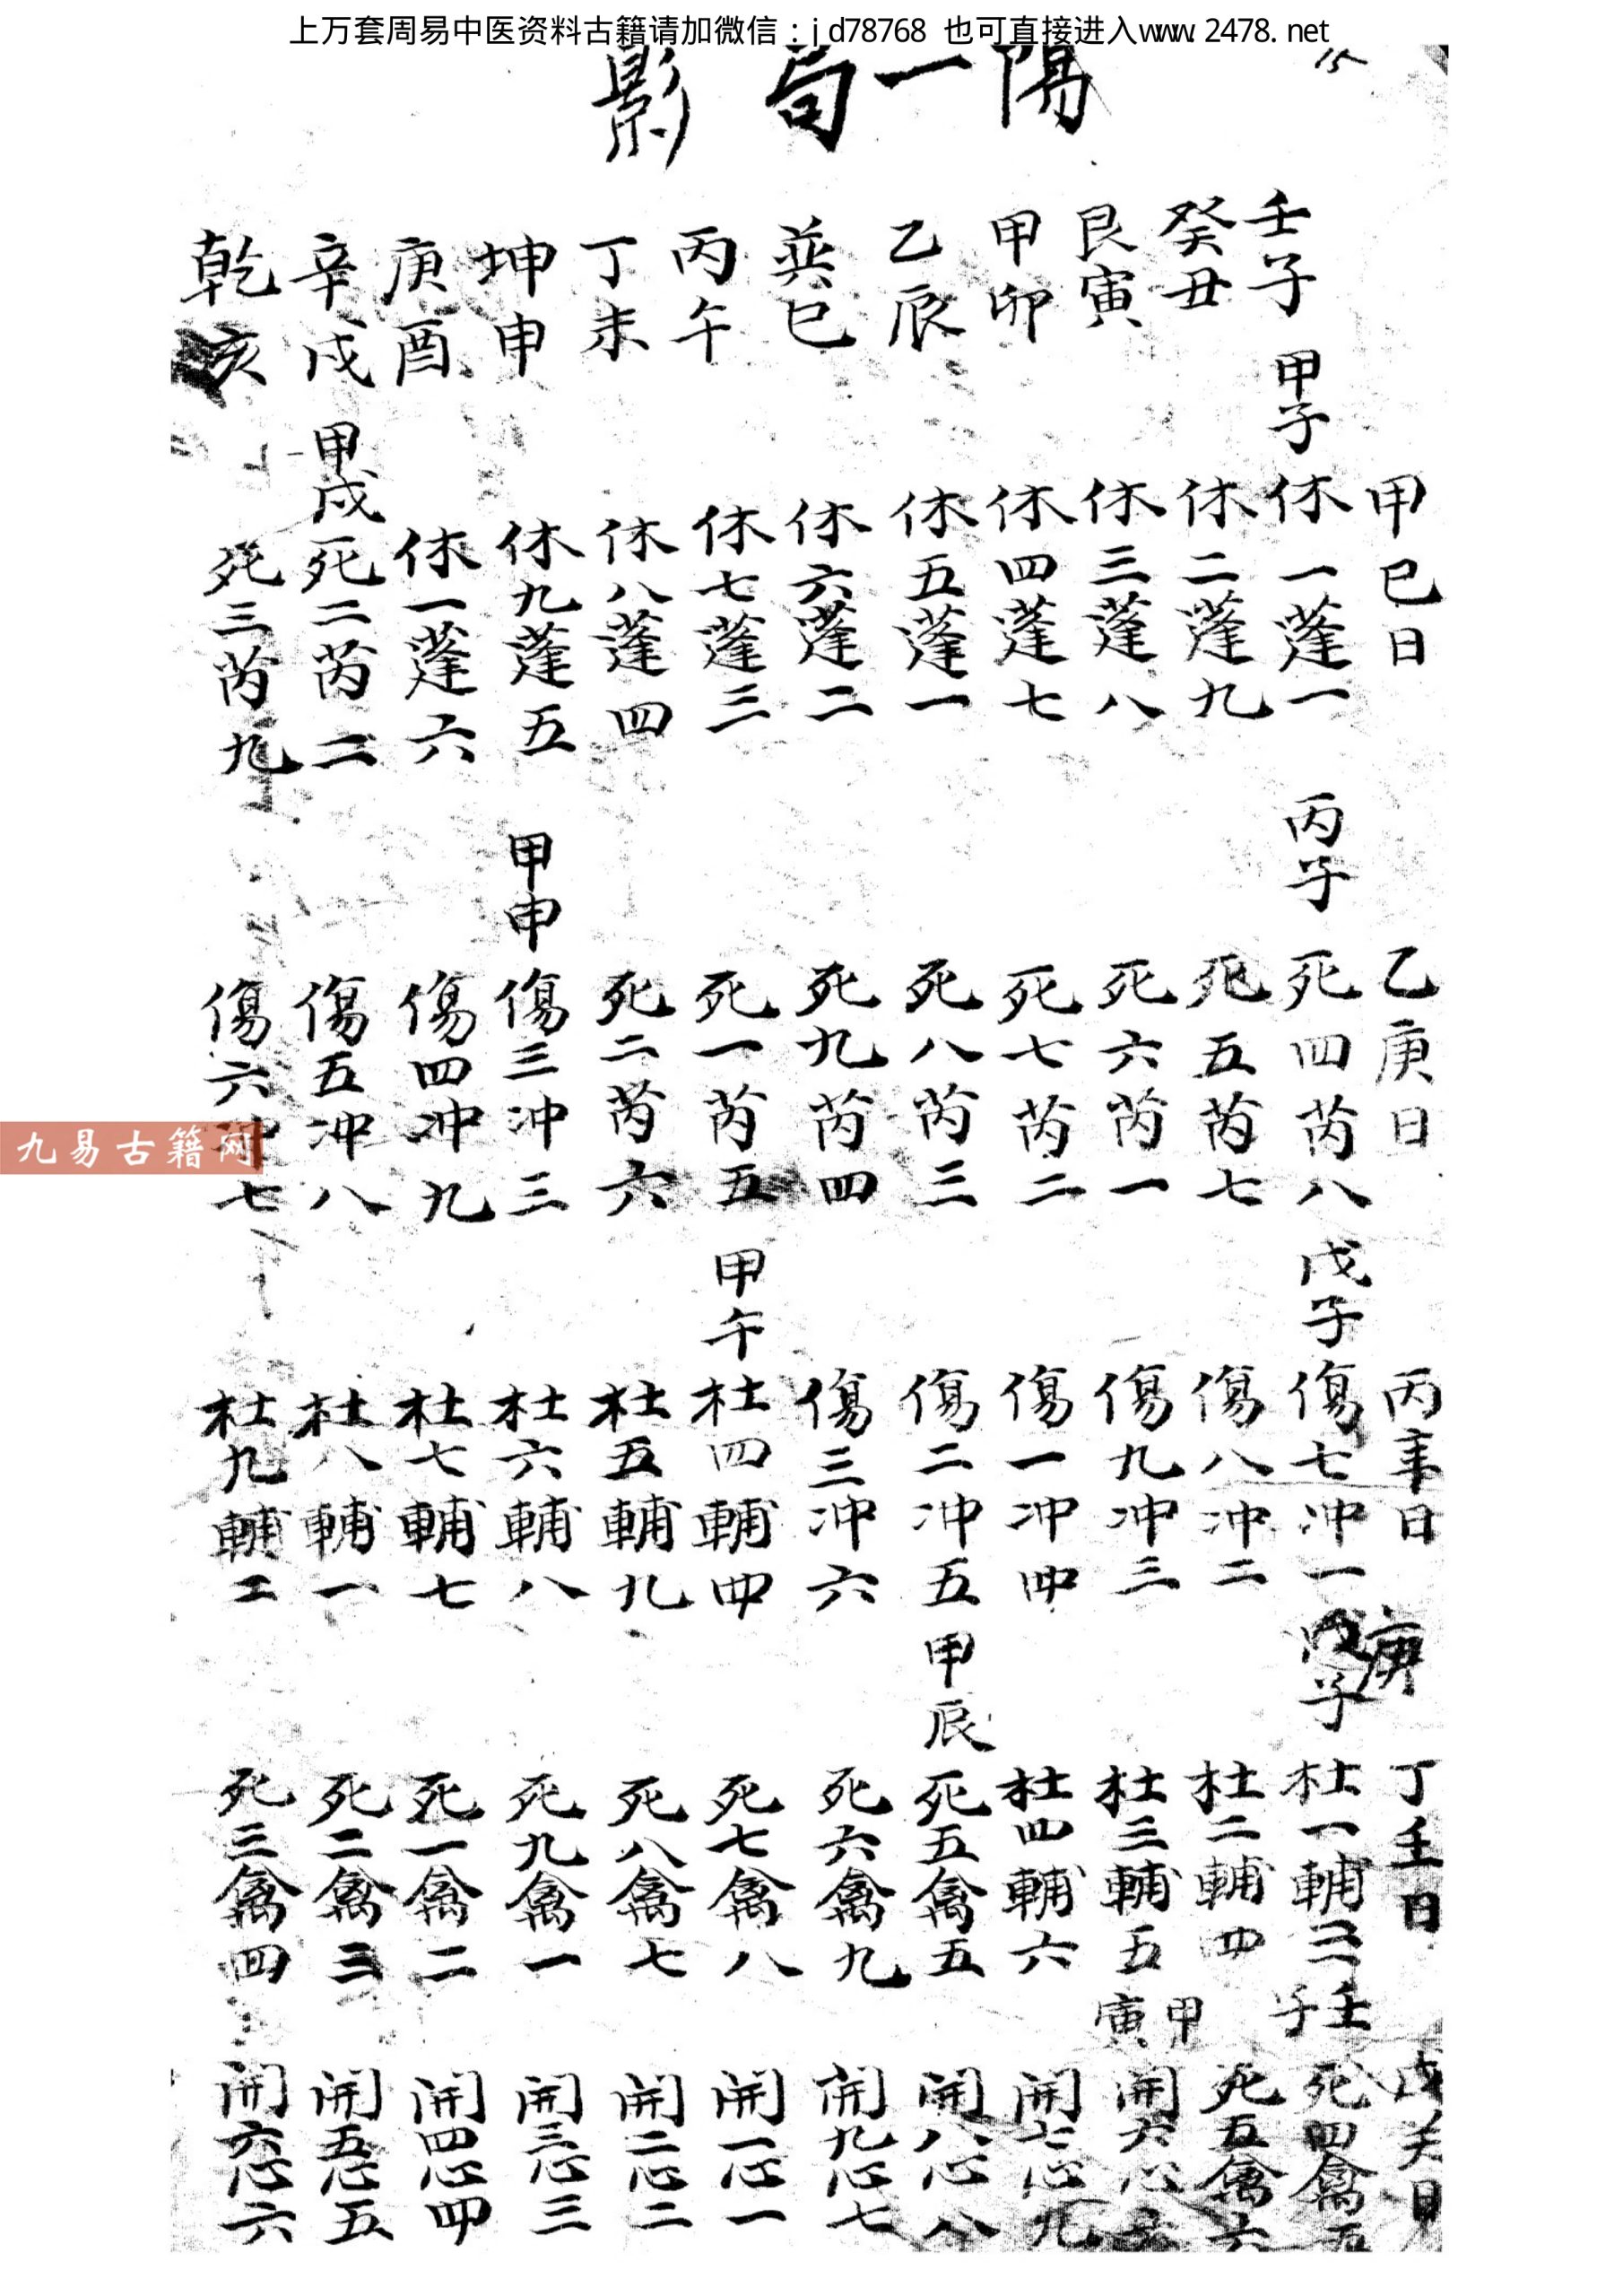 上万套周易中医资料古籍请加微信：jd78768 也可直接进入www.2478.net
陽一局 影
甲己日 乙庚日 丙辛日 庚 丁壬日 戊癸日
壬子 甲子 休一蓬一 丙子 死四芮八 戊子 傷七冲一 子 杜一輔三 壬子 死四禽五
癸丑 休二蓬九 死五芮七 傷八冲二 杜二輔四 甲寅 死五禽六
艮寅 休三蓬八 死六芮一 傷九冲三 杜三輔五 開六心
甲卯 休四蓬七 死七芮二 傷一冲四 杜四輔六 開七心九
乙辰 休五蓬一 死八芮三 傷二冲五 甲辰 死五禽五 開八心八
巽巳 休六蓬二 死九芮四 傷三冲六 死六禽九 開九心七
丙午 休七蓬三 死一芮五 甲午 杜四輔四 死七禽八 開一心一
丁未 休八蓬四 死二芮六 杜五輔九 死八禽七 開二心二
坤申 休九蓬五 甲申 傷三冲三 杜六輔八 死九禽一 開三心三
庚酉 休一蓬六 傷四冲九 杜七輔七 死一禽二 開四心四
辛戌 甲戌 死二芮二 傷五冲八 杜八輔一 死二禽三 開五心五
乾亥 死三芮九 傷六冲七 杜九輔二 死三禽四 開六心六
九易古籍网